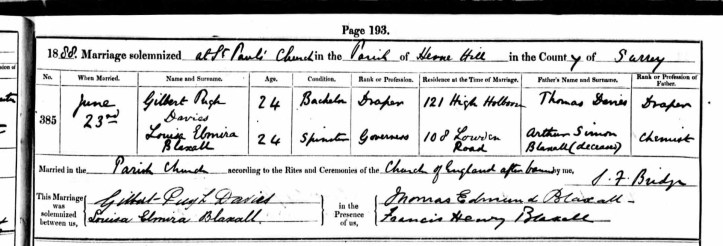 Page 193.
1888. Marriage solemnized at St Paul's Church in the Parish of Herne Hill in the County of Surrey
No. When Married. Name and Surname. Age. Condition. Rank or Profession. Residence at the Time of Marriage. Father's Name and Surname. Rank or Profession of Father.
385 June 23rd Gilbert Pugh Davies 24 Bachelor Draper 121 High Holborn Thomas Davies Draper
Louisa Elmira Blaxall 24 Spinster Governess 108 Lowden Road Arthur Simon Blaxall (deceased) Chemist
Married in the Parish Church according to the Rites and Ceremonies of the Church of England after banns by me,
J. F. Bridge
This Marriage was solemnized between us, Gilbert Pugh Davies Louisa Elmira Blaxall in the Presence of us, Thomas Edmund Blaxall Francis Henry Blaxall